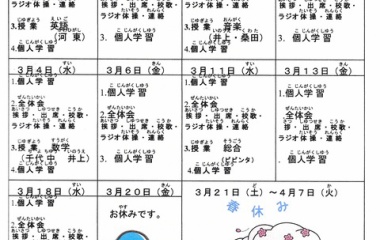 挨拶・出席・校歌・
ラジオ体操・連絡
3.授業 英語
(河東)
4.個人学習
挨拶・出席・校歌・
ラジオ体操・連絡
3. 個人学習
挨拶・出席・校歌・
ラジオ体操・連絡
3.授業 音楽
(井上・桑田)
4.個人学習
挨拶・出席・校歌・
ラジオ体操・連絡
3. 個人学習
3月4日(水)
1.個人学習
2.全体会
挨拶・出席・校歌・
ラジオ体操・連絡
3.授業 数学
(千代中 井上)
4.個人学習
3月6日(金)
1.個人学習
2.全体会
挨拶・出席・校歌・
ラジオ体操・連絡
3. 個人学習
3月11日(水)
1.個人学習
2.全体会
挨拶・出席・校歌・
ラジオ体操・連絡
3.授業 総合
4.個人学習
3月13日(金)
1.個人学習
2.全体会
挨拶・出席・校歌・
ラジオ体操・連絡
3. 個人学習
3月18日(水)
1.個人学習
2.全体会
挨拶・出席・校歌・
ラジオ体操・連絡
3月20日(金)
お休みです。
3月21日(土)～4月7日(火)
春休み